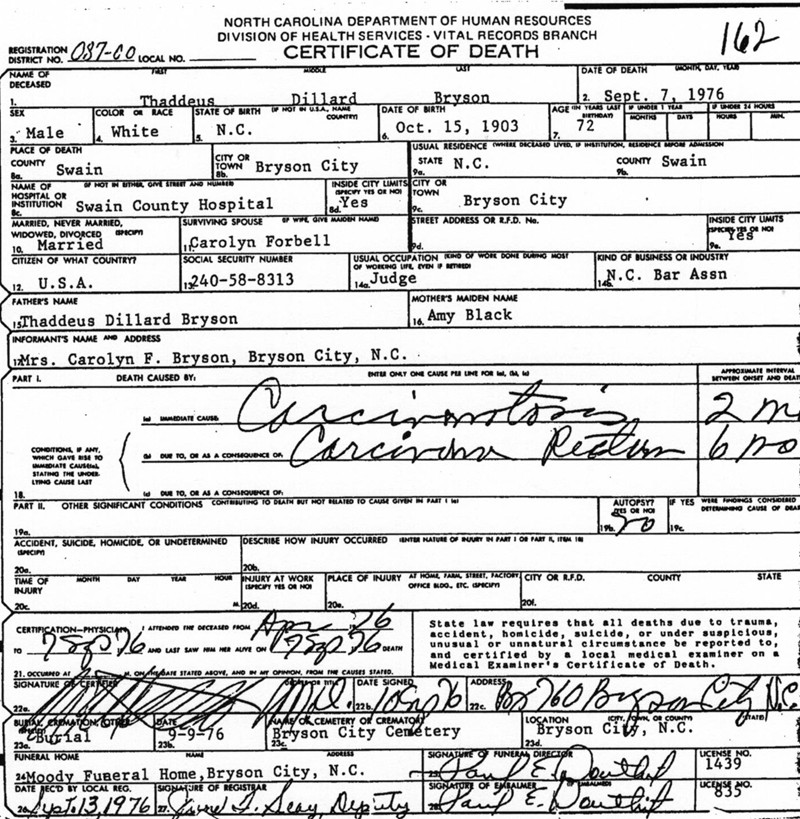 NORTH CAROLINA DEPARTMENT OF HUMAN RESOURCES
DIVISION OF HEALTH SERVICES - VITAL RECORDS BRANCH
CERTIFICATE OF DEATH
162
REGISTRATION DISTRICT NO. 087-60 LOCAL NO.
NAME OF DECEASED FIRST MIDDLE LAST DATE OF DEATH (MONTH, DAY, YEAR)
1. Thaddeus Dillard Bryson 2. Sept. 7, 1976
SEX COLOR OR RACE STATE OF BIRTH (IF NOT IN U.S.A., NAME COUNTRY) DATE OF BIRTH AGE (IN YEARS LAST BIRTHDAY) IF UNDER 1 YEAR IF UNDER 24 HOURS
MONTHS DAYS HOURS MIN.
3. Male 4. White 5. N.C. 6. Oct. 15, 1903 7. 72
PLACE OF DEATH USUAL RESIDENCE (WHERE DECEASED LIVED, IF INSTITUTION, RESIDENCE BEFORE ADMISSION
COUNTY Swain CITY OR TOWN Bryson City STATE N.C. COUNTY Swain
8a. 8b. 9a. 9b.
NAME OF HOSPITAL OR INSTITUTION (IF NOT IN EITHER, GIVE STREET AND NUMBER) INSIDE CITY LIMITS (SPECIFY YES OR NO) CITY OR TOWN
8c. Swain County Hospital 8d. Yes 9c. Bryson City
MARRIED, NEVER MARRIED, WIDOWED, DIVORCED (SPECIFY) SURVIVING SPOUSE (IF WIFE, GIVE MAIDEN NAME) STREET ADDRESS OR R.F.D. No. INSIDE CITY LIMITS (SPECIFY YES OR NO)
10. Married 11. Carolyn Forbell 9d. 9e. Yes
CITIZEN OF WHAT COUNTRY? SOCIAL SECURITY NUMBER USUAL OCCUPATION (KIND OF WORK DONE DURING MOST OF WORKING LIFE, EVEN IF RETIRED) KIND OF BUSINESS OR INDUSTRY
12. U.S.A. 13. 240-58-8313 14a. Judge 14b. N.C. Bar Assn
FATHER'S NAME MOTHER'S MAIDEN NAME
15. Thaddeus Dillard Bryson 16. Amy Black
INFORMANT'S NAME AND ADDRESS
17. Mrs. Carolyn F. Bryson, Bryson City, N.C.
PART I. DEATH CAUSED BY: ENTER ONLY ONE CAUSE PER LINE FOR (a), (b), (c) APPROXIMATE INTERVAL BETWEEN ONSET AND DEATH
(a) IMMEDIATE CAUSE: Carcinomatosis 2 mo
CONDITIONS, IF ANY, WHICH GAVE RISE TO IMMEDIATE CAUSE(a), STATING THE UNDERLYING CAUSE LAST
(b) DUE TO, OR AS A CONSEQUENCE OF: Carcinoma Rectum 6 mo
18. (c) DUE TO, OR AS A CONSEQUENCE OF:
PART II. OTHER SIGNIFICANT CONDITIONS CONTRIBUTING TO DEATH BUT NOT RELATED TO CAUSE GIVEN IN PART I (a) AUTOPSY? (YES OR NO) IF YES WERE FINDINGS CONSIDERED DETERMINING CAUSE OF DEA
19a. 19b. no 19c.
ACCIDENT, SUICIDE, HOMICIDE, OR UNDETERMINED (SPECIFY) DESCRIBE HOW INJURY OCCURRED (ENTER NATURE OF INJURY IN PART I OR PART II, ITEM 18)
20a. 20b.
TIME OF INJURY MONTH DAY YEAR HOUR INJURY AT WORK (SPECIFY YES OR NO) PLACE OF INJURY AT HOME, FARM, STREET, FACTORY, OFFICE BLDG., ETC. (SPECIFY) CITY OR R.F.D. COUNTY STATE
20c. M. 20d. 20e. 20f.
CERTIFICATION-PHYSICIAN: I ATTENDED THE DECEASED FROM Apr 76
TO 7 Sep 76 AND LAST SAW HIM HER ALIVE ON 7 Sep 76 DEATH
21. OCCURRED AT M. ON THE DATE STATED ABOVE, AND IN MY OPINION, FROM THE CAUSES STATED.
State law requires that all deaths due to trauma,
accident, homicide, suicide, or under suspicious,
unusual or unnatural circumstance be reported to,
and certified by a local medical examiner on a
Medical Examiner's Certificate of Death.
SIGNATURE OF CERTIFIER DEGREE OR TITLE DATE SIGNED ADDRESS
22a. M.D. 22b. 10 Sep 76 22c. Box 760 Bryson City N.C.
BURIAL, CREMATION, OTHER DATE NAME OF CEMETERY OR CREMATORY LOCATION (CITY, TOWN, OR COUNTY) (STATE)
23a. Burial 23b. 9-9-76 23c. Bryson City Cemetery 23d. Bryson City, N.C.
FUNERAL HOME NAME ADDRESS SIGNATURE OF FUNERAL DIRECTOR LICENSE NO.
24. Moody Funeral Home, Bryson City, N.C. 25. Paul E. Douthit 1439
DATE REC'D BY LOCAL REG. SIGNATURE OF REGISTRAR SIGNATURE OF EMBALMER LICENSE NO.
26. Sept. 13, 1976 27. Deputy 28. Paul E. Douthit 835